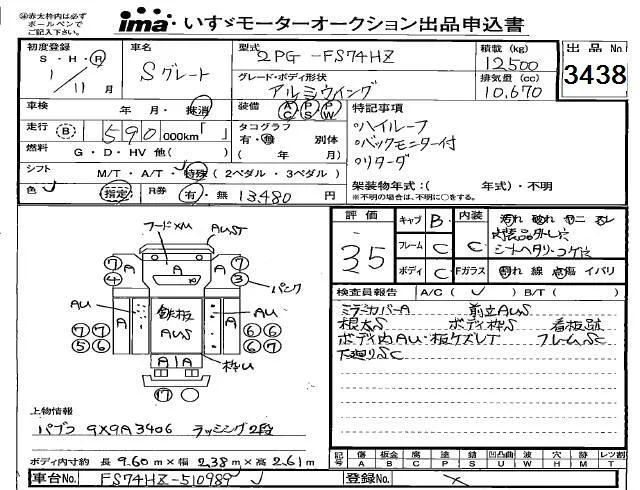 ㊟赤太枠内は必ず
ボールペンで
ご記入下さい。
ima いすゞモーターオークション出品申込書
初度登録 S・H・R 1/11月
車名 Sグレート
型式 2PG-FS74HZ
グレード・ボディ形状 アルミウイング
積載(kg) 12500
排気量(cc) 10,670
出品No 3438
車検 年 月・抹消
装備 AC PS PW
特記事項
ハイルーフ
バックモニター付
リターダ
走行 B 590000km「 」
タコグラフ 有・無 別体
( 年 月)
燃料 G・D・HV他( )
シフト M/T・A/T・特殊(2ペダル・3ペダル)
架装物年式:( 年式)・不明
※不明の場合は、不明に○をする。
色 指定 R券 有・無 13,480円
評価 35
キャブ B
フレーム C
ボディ C
内装 C
汚れ 破れ
シートヘタリ・コゲ穴
Fガラス 割れ 線 点傷 イバリ
検査員報告 A/C( ) B/T( )
ミラーカバーA 前立AUS
根太S ボディ枠S 看板跡
ボディ内AU・板ケズレT フレームSC
下廻りSC
フードメM
AUST
7 A A A 7
4 3
パンク
AU A 鉄板 AUS A AU
7 7 6 6
5 6 6 7
A A 枠U
17
上物情報
パブコ 9X9A3406 ラッシング2段
ボディ内寸約 長 9.60m×幅 2.38m×高 2.61m
記号 傷A 板金B 腐C 塗P 錆S 凹凸曲U 波W 欠H 穴X 跡M レツ割T
車台No. FS74HZ-510989
登録No.